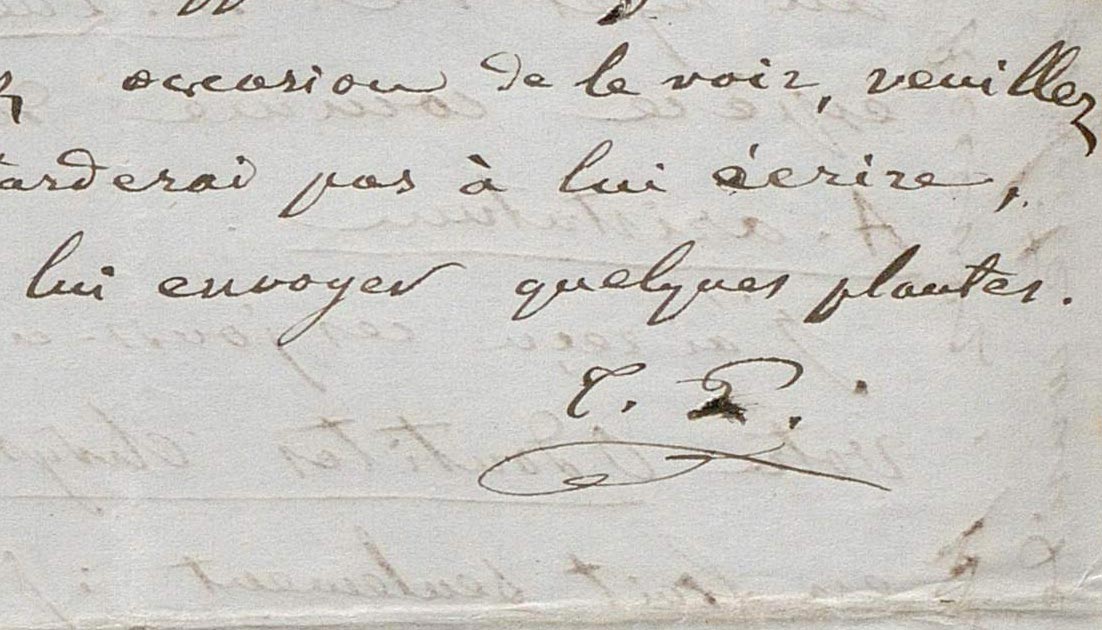 occasion de le voir, veuillez
arderai pas à lui écrire,
lui envoyer quelques plantes.
T. P.